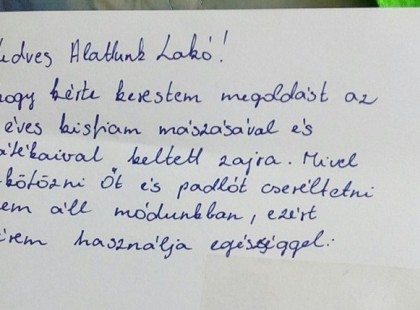 edves Alattunk Lakó!
hogy kérte kerestem megoldást az
éves kisfiam mászásával és
átékaival keltett zajra. Mivel
kötözni Őt és padlót cseréltetni
em áll módunkban, ezért
érem használja egészséggel: